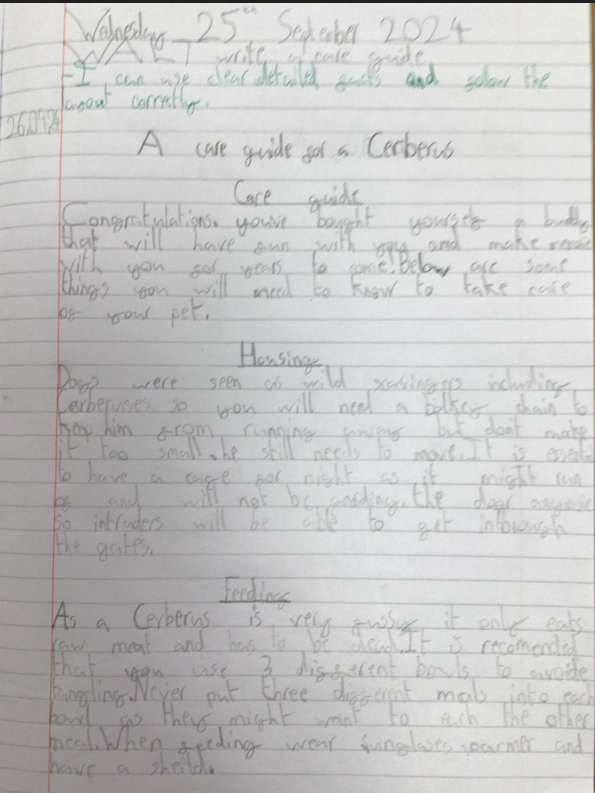 Wednesday 25th September 2024
WALT write a care guide
-I can use clear detailed facts and folow the
layout correctly.
26.09.24
A care guide for a Cerberus
Care guide
Congratulations. youve bought yourself a buddy
that will have fun with you and make
with you for years to come! Below are some
things you will need to know to take care
of your pet.
Housing
Dogs were seen as wild scavingers including
Cerberuses so you will need a chain to
keep him from running away but dont make
it too small, he still needs to move. It is
to have a cage for night as it might run
of and will not be the door
so intruders will be able to get
the gates.
Feeding
As a Cerberus is very fussy it only eats
raw meat and has to be dead. It is recomended
that you use 3 different bowls to avoide
tangling. Never put three different meals into each
bowl as they might want to the other
meal. When feeding wear sunglases, and
have a sheild.